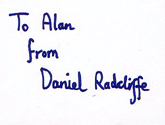 To Alan
from
Daniel Radcliffe